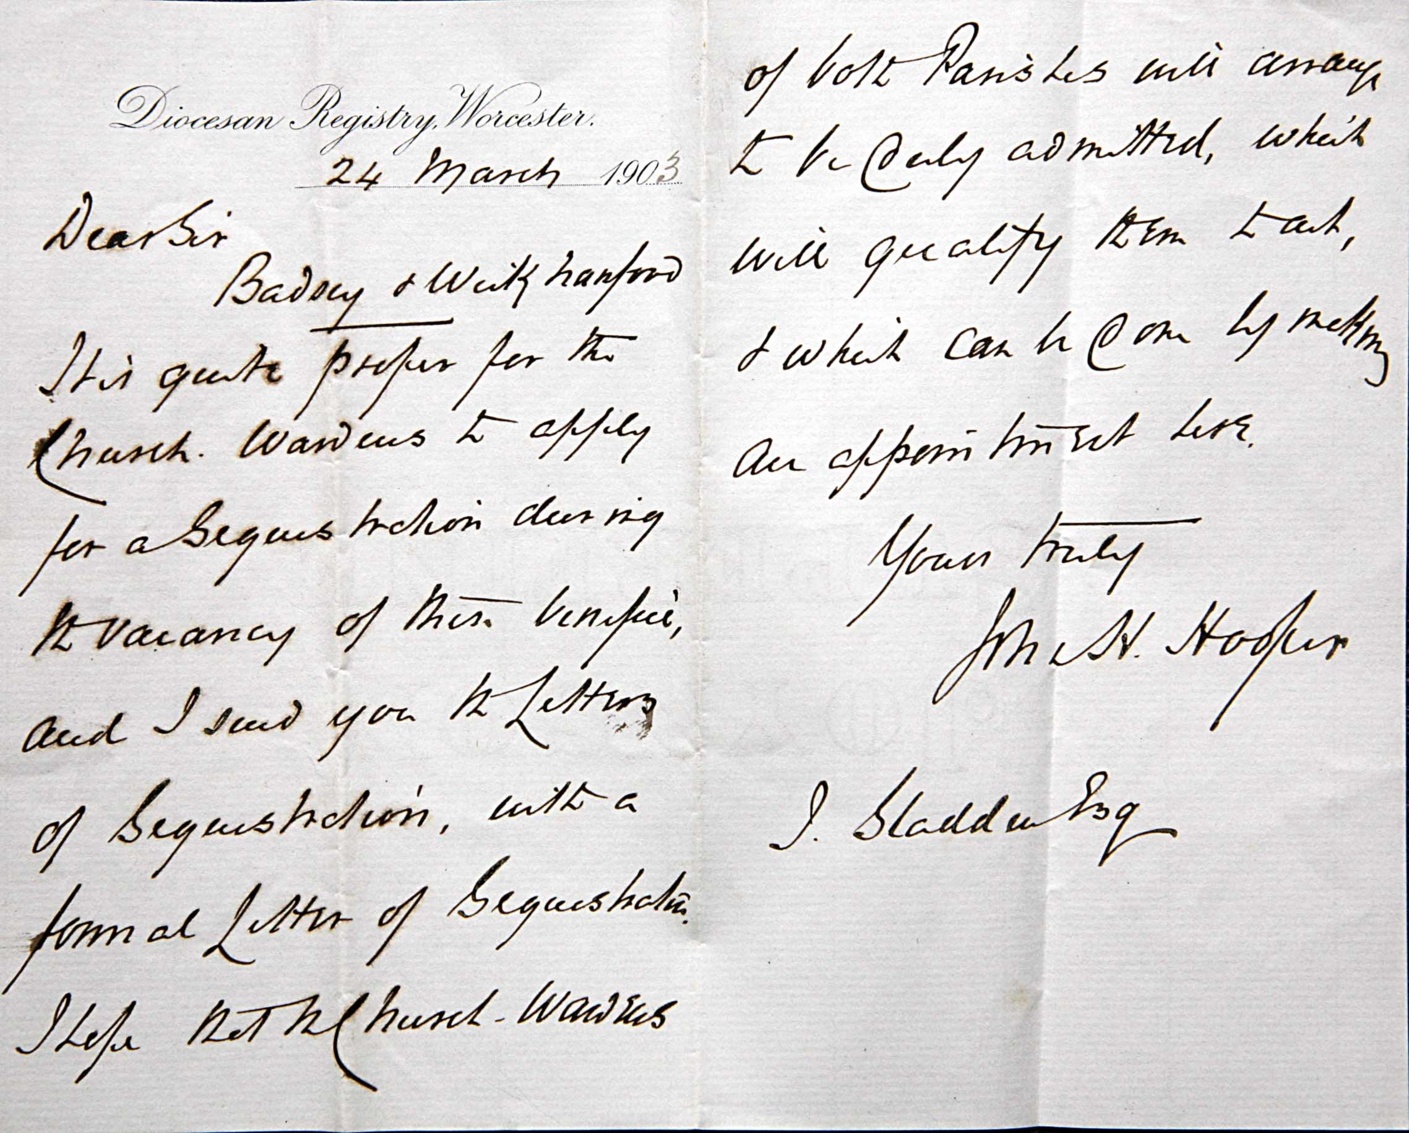 Diocesan Registry, Worcester.
24 March 1903
Dear Sir
Badsey & Wickhamford
It is quite proper for the
Church-Wardens to apply
for a Sequestration during
the vacancy of their benefice,
and I send you the Letters
of Sequestration, with a
formal Letter of Sequestration.
I hope that the Church-Wardens
of both Parishes will arrange
to be duly admitted, which
will qualify them to act,
& which can be done by making
an appointment here.
Yours truly
John H. Hooper
J. Sladden Esq